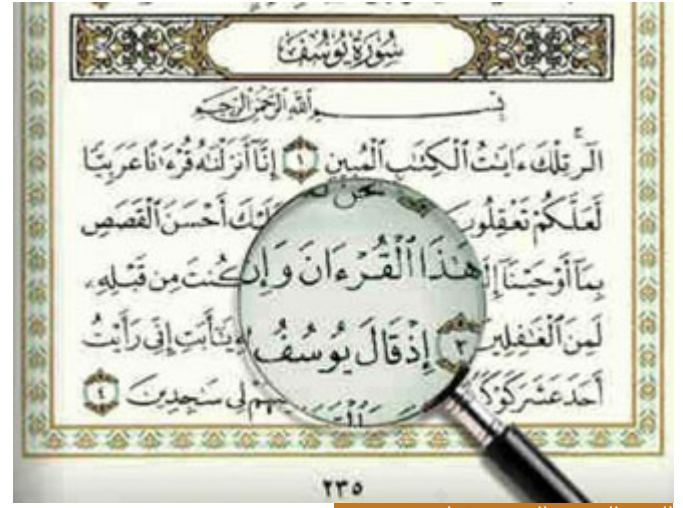 سُورَةُ يُوسُفَ
بِسْمِ اللَّهِ الرَّحْمَٰنِ الرَّحِيمِ
الٓر تِلْكَ ءَايَٰتُ ٱلْكِتَٰبِ ٱلْمُبِينِ ١ إِنَّآ أَنزَلْنَٰهُ قُرْءَٰنًا عَرَبِيًّا
لَّعَلَّكُمْ تَعْقِلُونَ نَحْنُ عَلَيْكَ أَحْسَنَ ٱلْقَصَصِ
بِمَآ أَوْحَيْنَآ هَٰذَا ٱلْقُرْءَانَ وَإِن كُنتَ مِن قَبْلِهِۦ
لَمِنَ ٱلْغَٰفِلِينَ ٣ إِذْ قَالَ يُوسُفُ يَٰٓأَبَتِ إِنِّى رَأَيْتُ
أَحَدَ عَشَرَ لِى سَٰجِدِينَ ٤
٢٣٥